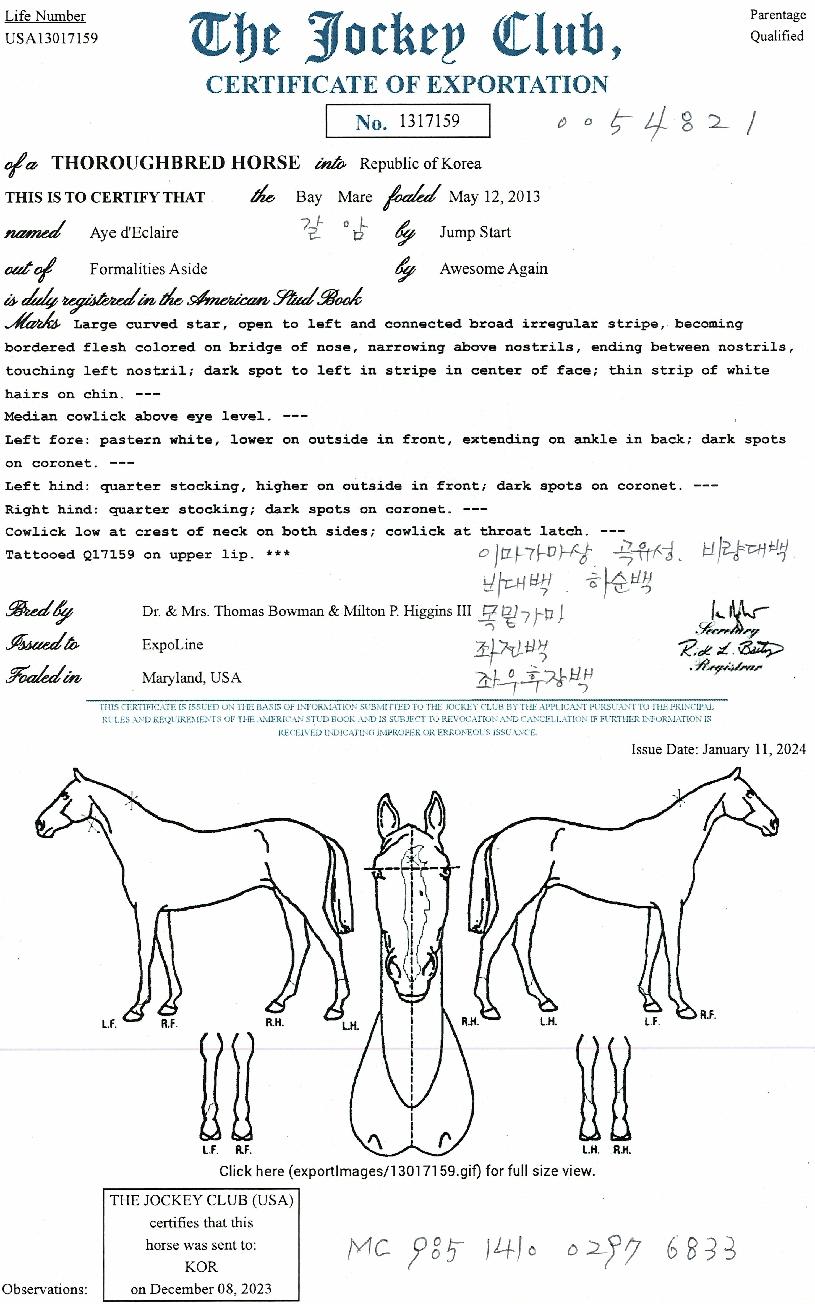 Life Number
USA13017159
The Jockey Club,
Parentage
Qualified
CERTIFICATE OF EXPORTATION
No. 1317159
0054821
of a THOROUGHBRED HORSE into Republic of Korea
THIS IS TO CERTIFY THAT the Bay Mare foaled May 12, 2013
named Aye d'Eclaire 갈 암 by Jump Start
out of Formalities Aside by Awesome Again
is duly registered in the American Stud Book
Marks Large curved star, open to left and connected broad irregular stripe, becoming
bordered flesh colored on bridge of nose, narrowing above nostrils, ending between nostrils,
touching left nostril; dark spot to left in stripe in center of face; thin strip of white
hairs on chin. ---
Median cowlick above eye level. ---
Left fore: pastern white, lower on outside in front, extending on ankle in back; dark spots
on coronet. ---
Left hind: quarter stocking, higher on outside in front; dark spots on coronet. ---
Right hind: quarter stocking; dark spots on coronet. ---
Cowlick low at crest of neck on both sides; cowlick at throat latch. ---
Tattooed Q17159 on upper lip. ***
이마가마상 곡유성. 비량대백
비대백 하순백
Bred by Dr. & Mrs. Thomas Bowman & Milton P. Higgins III 목밑가마
Secretary
Issued to ExpoLine 좌전백
Registrar
Foaled in Maryland, USA 좌우후장백
THIS CERTIFICATE IS ISSUED ON THE BASIS OF INFORMATION SUBMITTED TO THE JOCKEY CLUB BY THE APPLICANT PURSUANT TO THE PRINCIPAL
RULES AND REQUIREMENTS OF THE AMERICAN STUD BOOK AND IS SUBJECT TO REVOCATION AND CANCELLATION IF FURTHER INFORMATION IS
RECEIVED INDICATING IMPROPER OR ERRONEOUS ISSUANCE.
Issue Date: January 11, 2024
L.F. R.F. R.H. L.H. R.H. L.H. L.F. R.F.
L.F. R.F. L.H. R.H.
Click here (exportImages/13017159.gif) for full size view.
THE JOCKEY CLUB (USA)
certifies that this
horse was sent to:
KOR
on December 08, 2023
Observations:
MC 985 1410 0297 6833